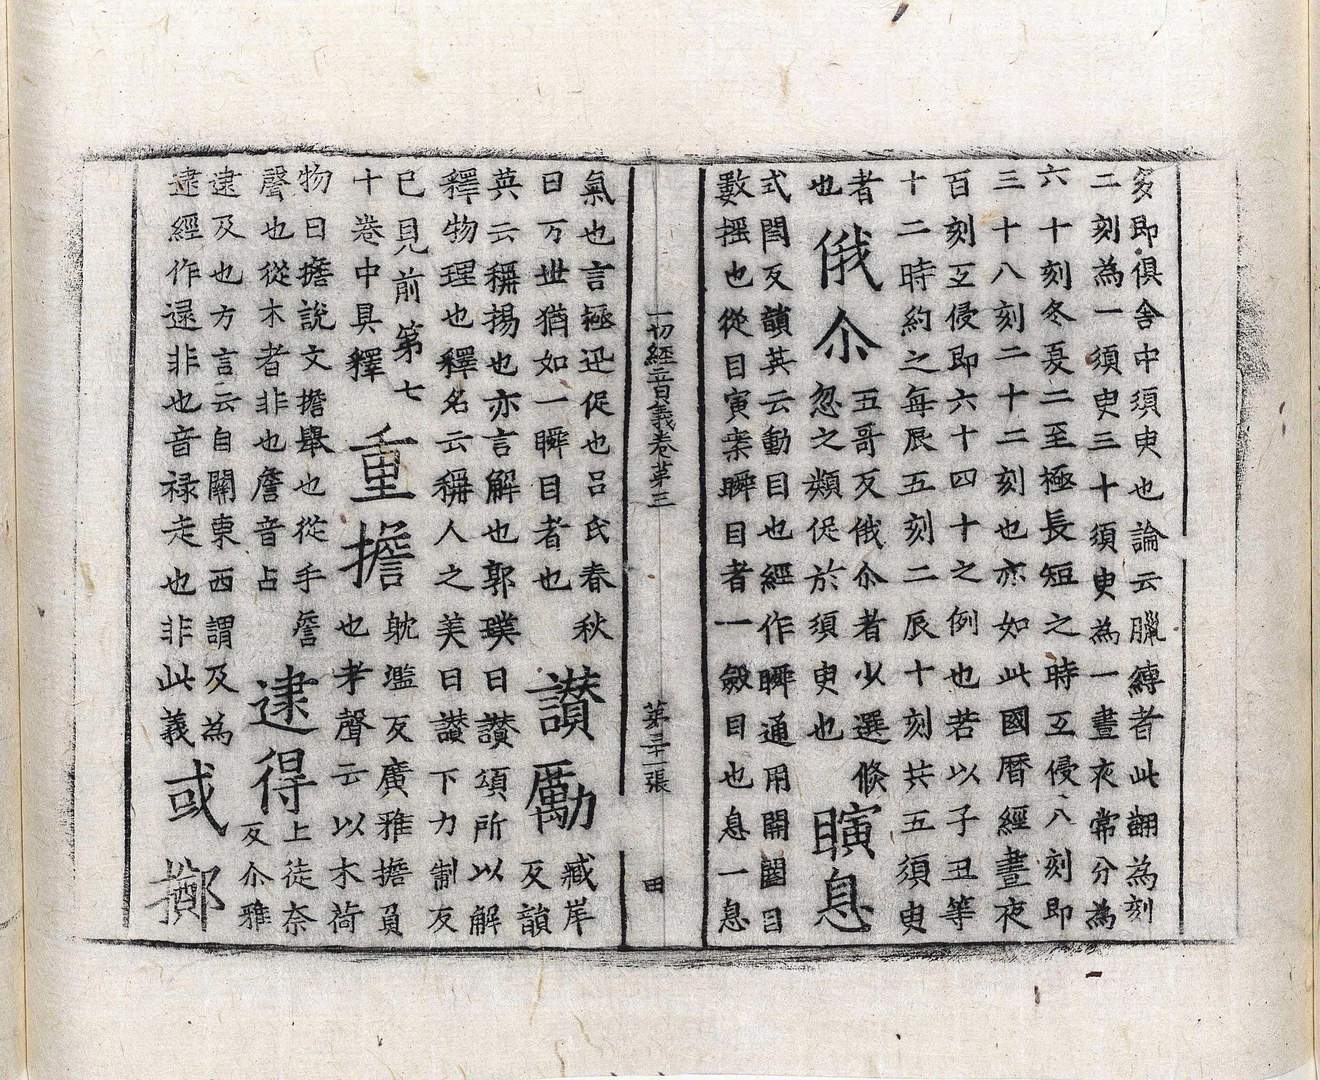 多即俱舍中須臾也論云臘縛者此翻為刻
二刻為一須臾三十須臾為一晝夜常分為
六十刻冬夏二至極長短之時互侵八刻即
三十八刻二十二刻也亦如此國曆經晝夜
百刻互侵即六十四十之例也若以子丑等
十二時約之每辰五刻二辰十刻共五須臾
者
也
俄尒
五哥反俄尒者少選倐
忽之類促於須臾也
瞚息
式閏反韻英云動目也經作瞬通用開闔目
數搖也從目寅案瞬目者一斂目也息一息
一切經音義卷第三 第三十一張 田
氣也言極迅促也呂氏春秋
曰万世猶如一瞬目者也
讃勵
臧岸
反韻
英云稱揚也亦言解也郭璞曰讃頌所以解
釋物理也釋名云稱人之美曰讃下力制反
已見前第七
十卷中具釋
重擔
耽濫反廣雅擔負
也考聲云以木荷
物曰擔說文擔舉也從手詹
聲也從木者非也詹音占
逮得
上徒奈
反尒雅
逮及也方言云自關東西謂及為
逮經作逯非也音祿走也非此義
或擲